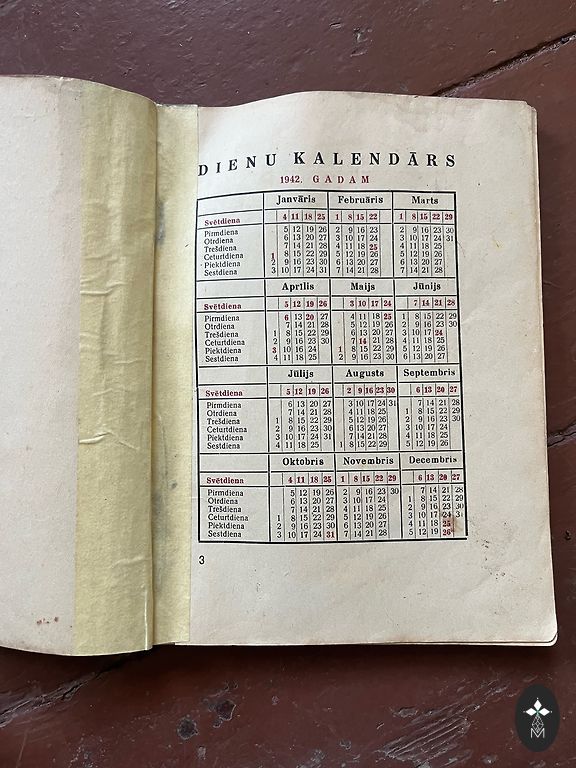 DIENU KALENDĀRS
1942. GADAM
Janvāris Februāris Marts
Svētdiena 4 11 18 25 1 8 15 22 1 8 15 22 29
Pirmdiena 5 12 19 26 2 9 16 23 2 9 16 23 30
Otrdiena 6 13 20 27 3 10 17 24 3 10 17 24 31
Trešdiena 7 14 21 28 4 11 18 25 4 11 18 25
Ceturtdiena 1 8 15 22 29 5 12 19 26 5 12 19 26
Piektdiena 2 9 16 23 30 6 13 20 27 6 13 20 27
Sestdiena 3 10 17 24 31 7 14 21 28 7 14 21 28
Aprīlis Maijs Jūnijs
Svētdiena 5 12 19 26 3 10 17 24 7 14 21 28
Pirmdiena 6 13 20 27 4 11 18 25 1 8 15 22 29
Otrdiena 7 14 21 28 5 12 19 26 2 9 16 23 30
Trešdiena 1 8 15 22 29 6 13 20 27 3 10 17 24
Ceturtdiena 2 9 16 23 30 7 14 21 28 4 11 18 25
Piektdiena 3 10 16 24 1 8 15 22 29 5 12 19 26
Sestdiena 4 11 18 25 2 9 16 23 30 6 13 20 27
Jūlijs Augusts Septembris
Svētdiena 5 12 19 26 2 9 16 23 30 6 13 20 27
Pirmdiena 6 13 20 27 3 10 17 24 31 7 14 21 28
Otrdiena 7 14 21 28 4 11 18 25 1 8 15 22 29
Trešdiena 1 8 15 22 29 5 12 19 26 2 9 16 23 30
Ceturtdiena 2 9 16 23 30 6 13 20 27 3 10 17 24
Piektdiena 3 10 17 24 31 7 14 21 28 4 11 18 25
Sestdiena 4 11 18 25 1 8 15 22 29 5 12 19 26
Oktobris Novembris Decembris
Svētdiena 4 11 18 25 1 8 15 22 29 6 13 20 27
Pirmdiena 5 12 19 26 2 9 16 23 30 7 14 21 28
Otrdiena 6 13 20 27 3 10 17 24 1 8 15 22 29
Trešdiena 7 14 21 28 4 11 18 25 2 9 16 23 30
Ceturtdiena 1 8 15 22 29 5 12 19 26 3 10 17 24 31
Piektdiena 2 9 16 23 30 6 13 20 27 4 11 18 25
Sestdiena 3 10 17 24 31 7 14 21 28 5 12 19 26
3